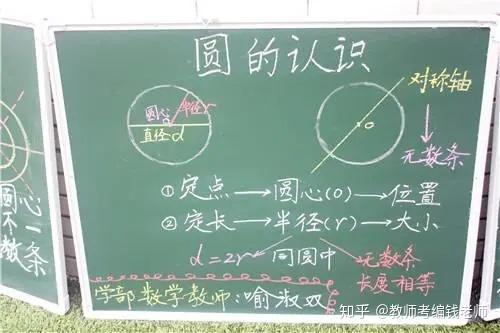 圆的认识
圆心
半径r
直径d
o
对称轴
无数条
①定点→圆心(o)→位置
②定长→半径(r)→大小
d=2r
同圆中
无数条
长度相等
学部数学教师:喻淑双
圆心
不一
数条
知乎 @教师考编钱老师